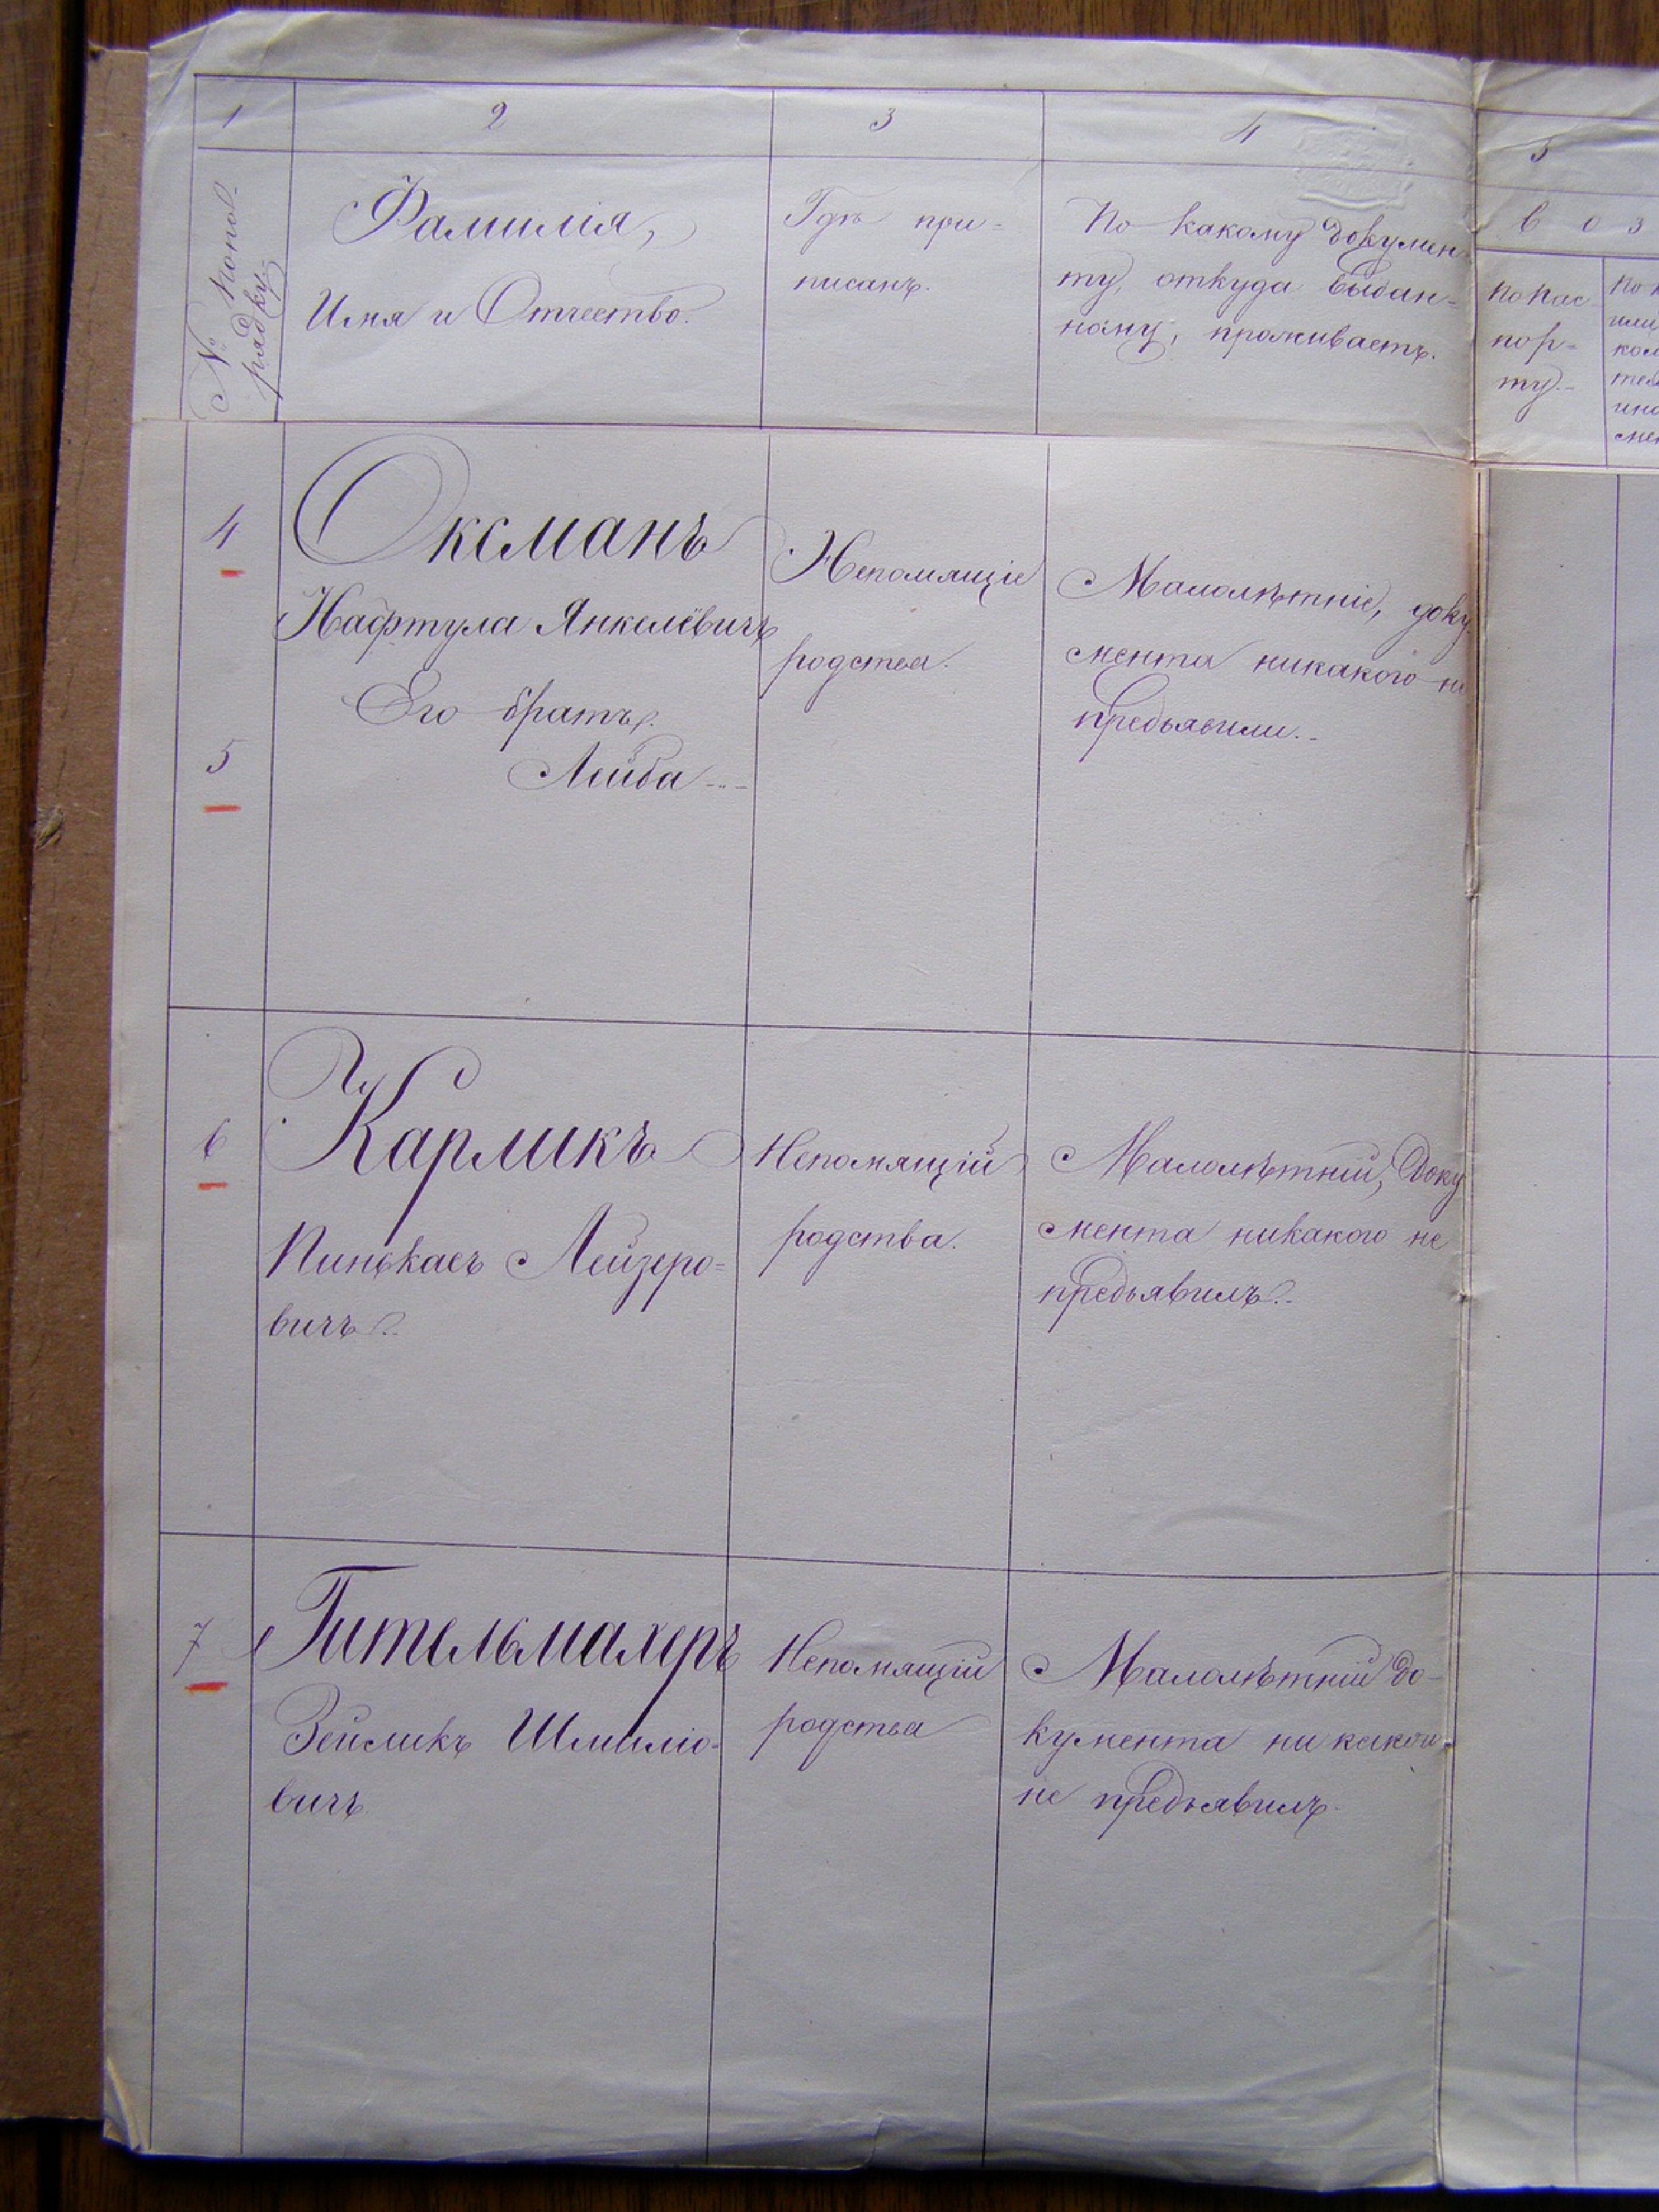 1
2
3
4
5
№ по пол-
рядку.
Фамилія,
Имя и Отчество.
Гдѣ при-
писанъ.
По какому докумен-
ту, откуда выдан-
ному, проживаетъ.
в о з
По пас-
пор-
ту.
4
Оксманъ
Нафтула Янкелевичъ
5
Его братъ
Лейба
Непомящіе
родства.
Малолѣтніе, доку-
мента никакого не
предъявили.
6
Карликъ
Пинькасъ Лейзеро-
вичъ.
Непомнящій
родства.
Малолѣтній, доку
мента никакого не
предъявилъ.
7
Гительмахеръ
Зейликъ Шмиліо-
вичъ
Непомнящій
родства
Малолѣтній до-
кумента никакого
не предъявилъ.